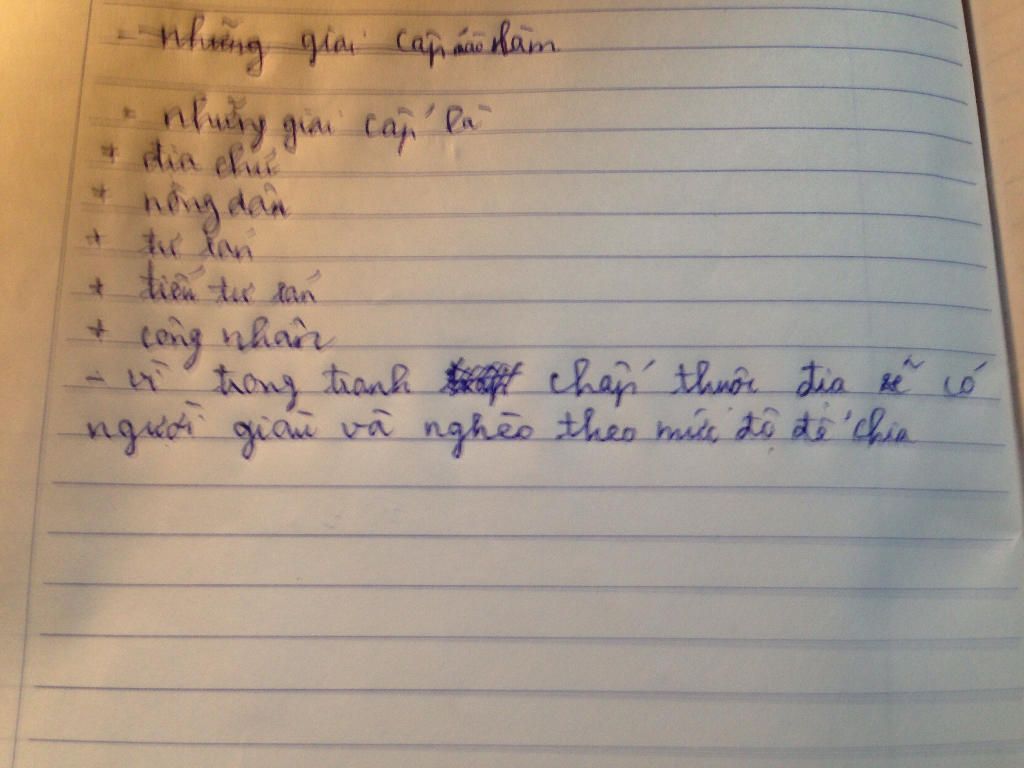 - những giai cấp nào nằm
- những giai cấp là
+ địa chủ
+ nông dân
+ tư sản
+ tiểu tư sản
+ công nhân
- vì trong tranh chấp thuộc địa sẽ có
người giàu và nghèo theo mức độ để chia